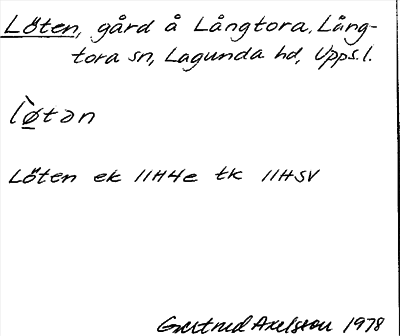 Löten, gård å Långtora, Lång-
tora sn, Lagunda hd, Upps.l.
lø̀tən
Löten ek 11H4e tk 11HSV
Gertrud Axelsson 1978